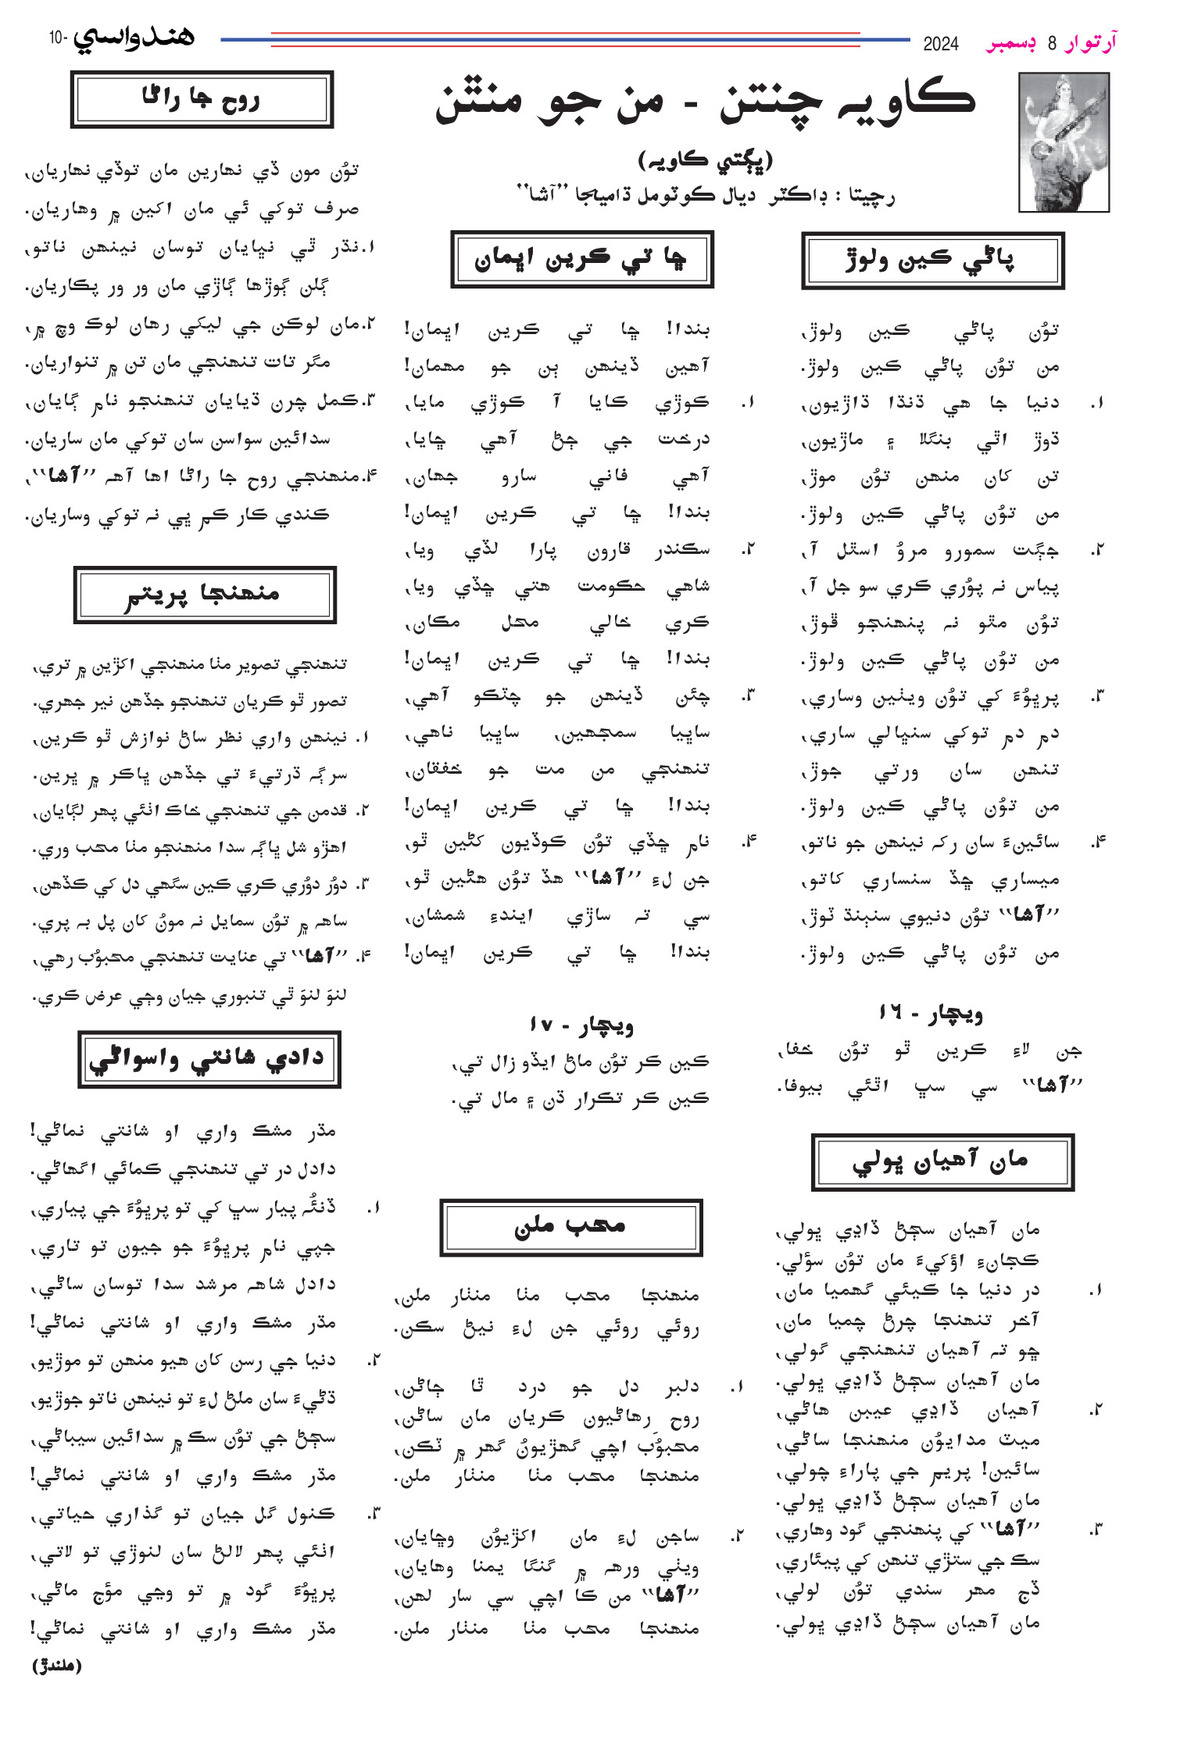 آرتوار 8 ڊسمبر 2024
هندواسي -10
ڪاويہ چنتن - من جو منٿن
(ڀڳتي ڪاويہ)
رچيتا : ڊاڪٽر ديال ڪوٽومل ڌاميجا ”آشا“
پاڻي ڪين ولوڙ
توُن پاڻي ڪين ولوڙ،
من توُن پاڻي ڪين ولوڙ.
۱. دنيا جا هي ڌنڌا ڌاڙيون،
ڌوڙ اٿي بنگلا ۽ ماڙيون،
تن کان منهن توُن موڙ،
من توُن پاڻي ڪين ولوڙ.
۲. جڳت سمورو مروُ استل آ،
پياس نہ پوُري ڪري سو جل آ،
توُن مٿو نہ پنهنجو ڦوڙ،
من توُن پاڻي ڪين ولوڙ.
۳. پرڀوُءَ کي توُن وينين وساري،
دم دم توکي سنڀالي ساري،
تنهن سان ورتي جوڙ،
من توُن پاڻي ڪين ولوڙ.
۴. سائينءَ سان رکہ نينهن جو ناتو،
ميساري ڇڏ سنساري کاتو،
”آشا“ توُن دنيوي سنٻنڌ ٽوڙ،
من توُن پاڻي ڪين ولوڙ.
ويچار - ۱۶
جن لاءِ ڪرين ٿو توُن خفا،
”آشا“ سي سڀ اٿئي بيوفا.
مان آهيان ڀولي
مان آهيان سڄڻ ڏاڍي ڀولي،
ڪڃانءِ اؤکيءَ مان توُن سؤلي.
۱. در دنيا جا ڪيئي گهميا مان،
آخر تنهنجا چرڻ چميا مان،
ڇو تہ آهيان تنهنجي گولي،
مان آهيان سڄڻ ڏاڍي ڀولي.
۲. آهيان ڏاڍي عيبن هاڻي،
ميٽ مدايوُن منهنجا ساڻي،
سائين! پريم جي پاراءِ چولي،
مان آهيان سڄڻ ڏاڍي ڀولي.
۳. ”آشا“ کي پنهنجي گود وهاري،
سڪ جي ستڙي تنهن کي پيئاري،
ڏج مهر سندي توُن لولي،
مان آهيان سڄڻ ڏاڍي ڀولي.
ڇا تي ڪرين اڀمان
بندا! ڇا تي ڪرين اڀمان!
آهين ڏينهن ٻن جو مهمان!
۱. ڪوڙي ڪايا آ ڪوڙي مايا،
درخت جي ڄڻ آهي ڇايا،
آهي فاني سارو جهان،
بندا! ڇا تي ڪرين اڀمان!
۲. سڪندر قارون پارا لڏي ويا،
شاهي حڪومت هتي ڇڏي ويا،
ڪري خالي محل مڪان،
بندا! ڇا تي ڪرين اڀمان!
۳. چئن ڏينهن جو چٽڪو آهي،
ساڀيا سمجهين، ساڀيا ناهي،
تنهنجي من مت جو خفقان،
بندا! ڇا تي ڪرين اڀمان!
۴. نام ڇڏي توُن ڪوڏيون کڻين ٿو،
جن لءِ ”آشا“ هڏ توُن هڻين ٿو،
سي تہ ساڙي ايندءِ شمشان،
بندا! ڇا تي ڪرين اڀمان!
ويچار - ۱۷
ڪين ڪر توُن ماڻ ايڏو زال تي،
ڪين ڪر تڪرار ڌن ۽ مال تي.
محب ملن
منهنجا محب مٺا منٺار ملن،
روئي روئي جن لءِ نيڻ سڪن.
۱. دلبر دل جو درد ٿا ڄاڻن،
روح رِهاڻيون ڪريان مان ساڻن،
محبوُب اچي گهڙيونُ گهر ۾ ٽڪن،
منهنجا محب مٺا منٺار ملن.
۲. ساجن لءِ مان اکڙيوُن وڇايان،
ويٺي ورهہ ۾ گنگا يمنا وهايان،
”آشا“ من ڪا اچي سي سار لهن،
منهنجا محب مٺا منٺار ملن.
روح جا راڻا
توُن مون ڏي نهارين مان توڏي نهاريان،
صرف توکي ئي مان اکين ۾ وهاريان.
۱. نڌر ٿي نڀايان توسان نينهن ناتو،
ڳلن ڳوڙها ڳاڙي مان ور ور پڪاريان.
۲. مان لوڪن جي ليکي رهان لوڪ وچ ۾،
مگر تات تنهنجي مان تن ۾ تنواريان.
۳. ڪمل چرن ڌيايان تنهنجو نام ڳايان،
سدائين سواسن سان توکي مان ساريان.
۴. منهنجي روح جا راڻا اها آهہ ”آشا“،
ڪندي ڪار ڪم ڀي نہ توکي وساريان.
منهنجا پريتم
تنهنجي تصوير مٺا منهنجي اکڙين ۾ تري،
تصور ٿو ڪريان تنهنجو جڏهن نير جهري.
۱. نينهن واري نظر ساڻ نوازش ٿو ڪرين،
سرڳہ ڌرتيءَ تي جڏهن ڀاڪر ۾ ڀرين.
۲. قدمن جي تنهنجي خاڪ انئي پهر لڳايان،
اهڙو شل ڀاڳہ سدا منهنجو مٺا محب وري.
۳. دوُر دوُري ڪري ڪين سگهي دل کي ڪڏهن،
ساهہ ۾ توُن سمايل نہ مونُ کان پل بہ پري.
۴. ”آشا“ تي عنايت تنهنجي محبوُب رهي،
لنوَ لنوَ ٿي تنبوري جيان وڃي عرض ڪري.
دادي شانتي واسواڻي
مڌر مشڪ واري او شانتي نماڻي!
دادل در تي تنهنجي ڪمائي اگهاڻي.
۱. ڏنئُہ پيار سڀ کي تو پرڀوُءَ جي پياري،
جپي نام پرڀوُءَ جو جيون تو تاري،
دادل شاهہ مرشد سدا توسان ساڻي،
مڌر مشڪ واري او شانتي نماڻي!
۲. دنيا جي رسن کان هيو منهن تو موڙيو،
ڌڻيءَ سان ملڻ لءِ تو نينهن ناتو جوڙيو،
سڄڻ جي توُن سڪ ۾ سدائين سيباڻي،
مڌر مشڪ واري او شانتي نماڻي!
۳. ڪنول گل جيان تو گذاري حياتي،
انئي پهر لالڻ سان لنوڙي تو لاتي،
پرڀوُءَ گود ۾ تو وڃي مؤج ماڻي،
مڌر مشڪ واري او شانتي نماڻي!
(هلندڙ)